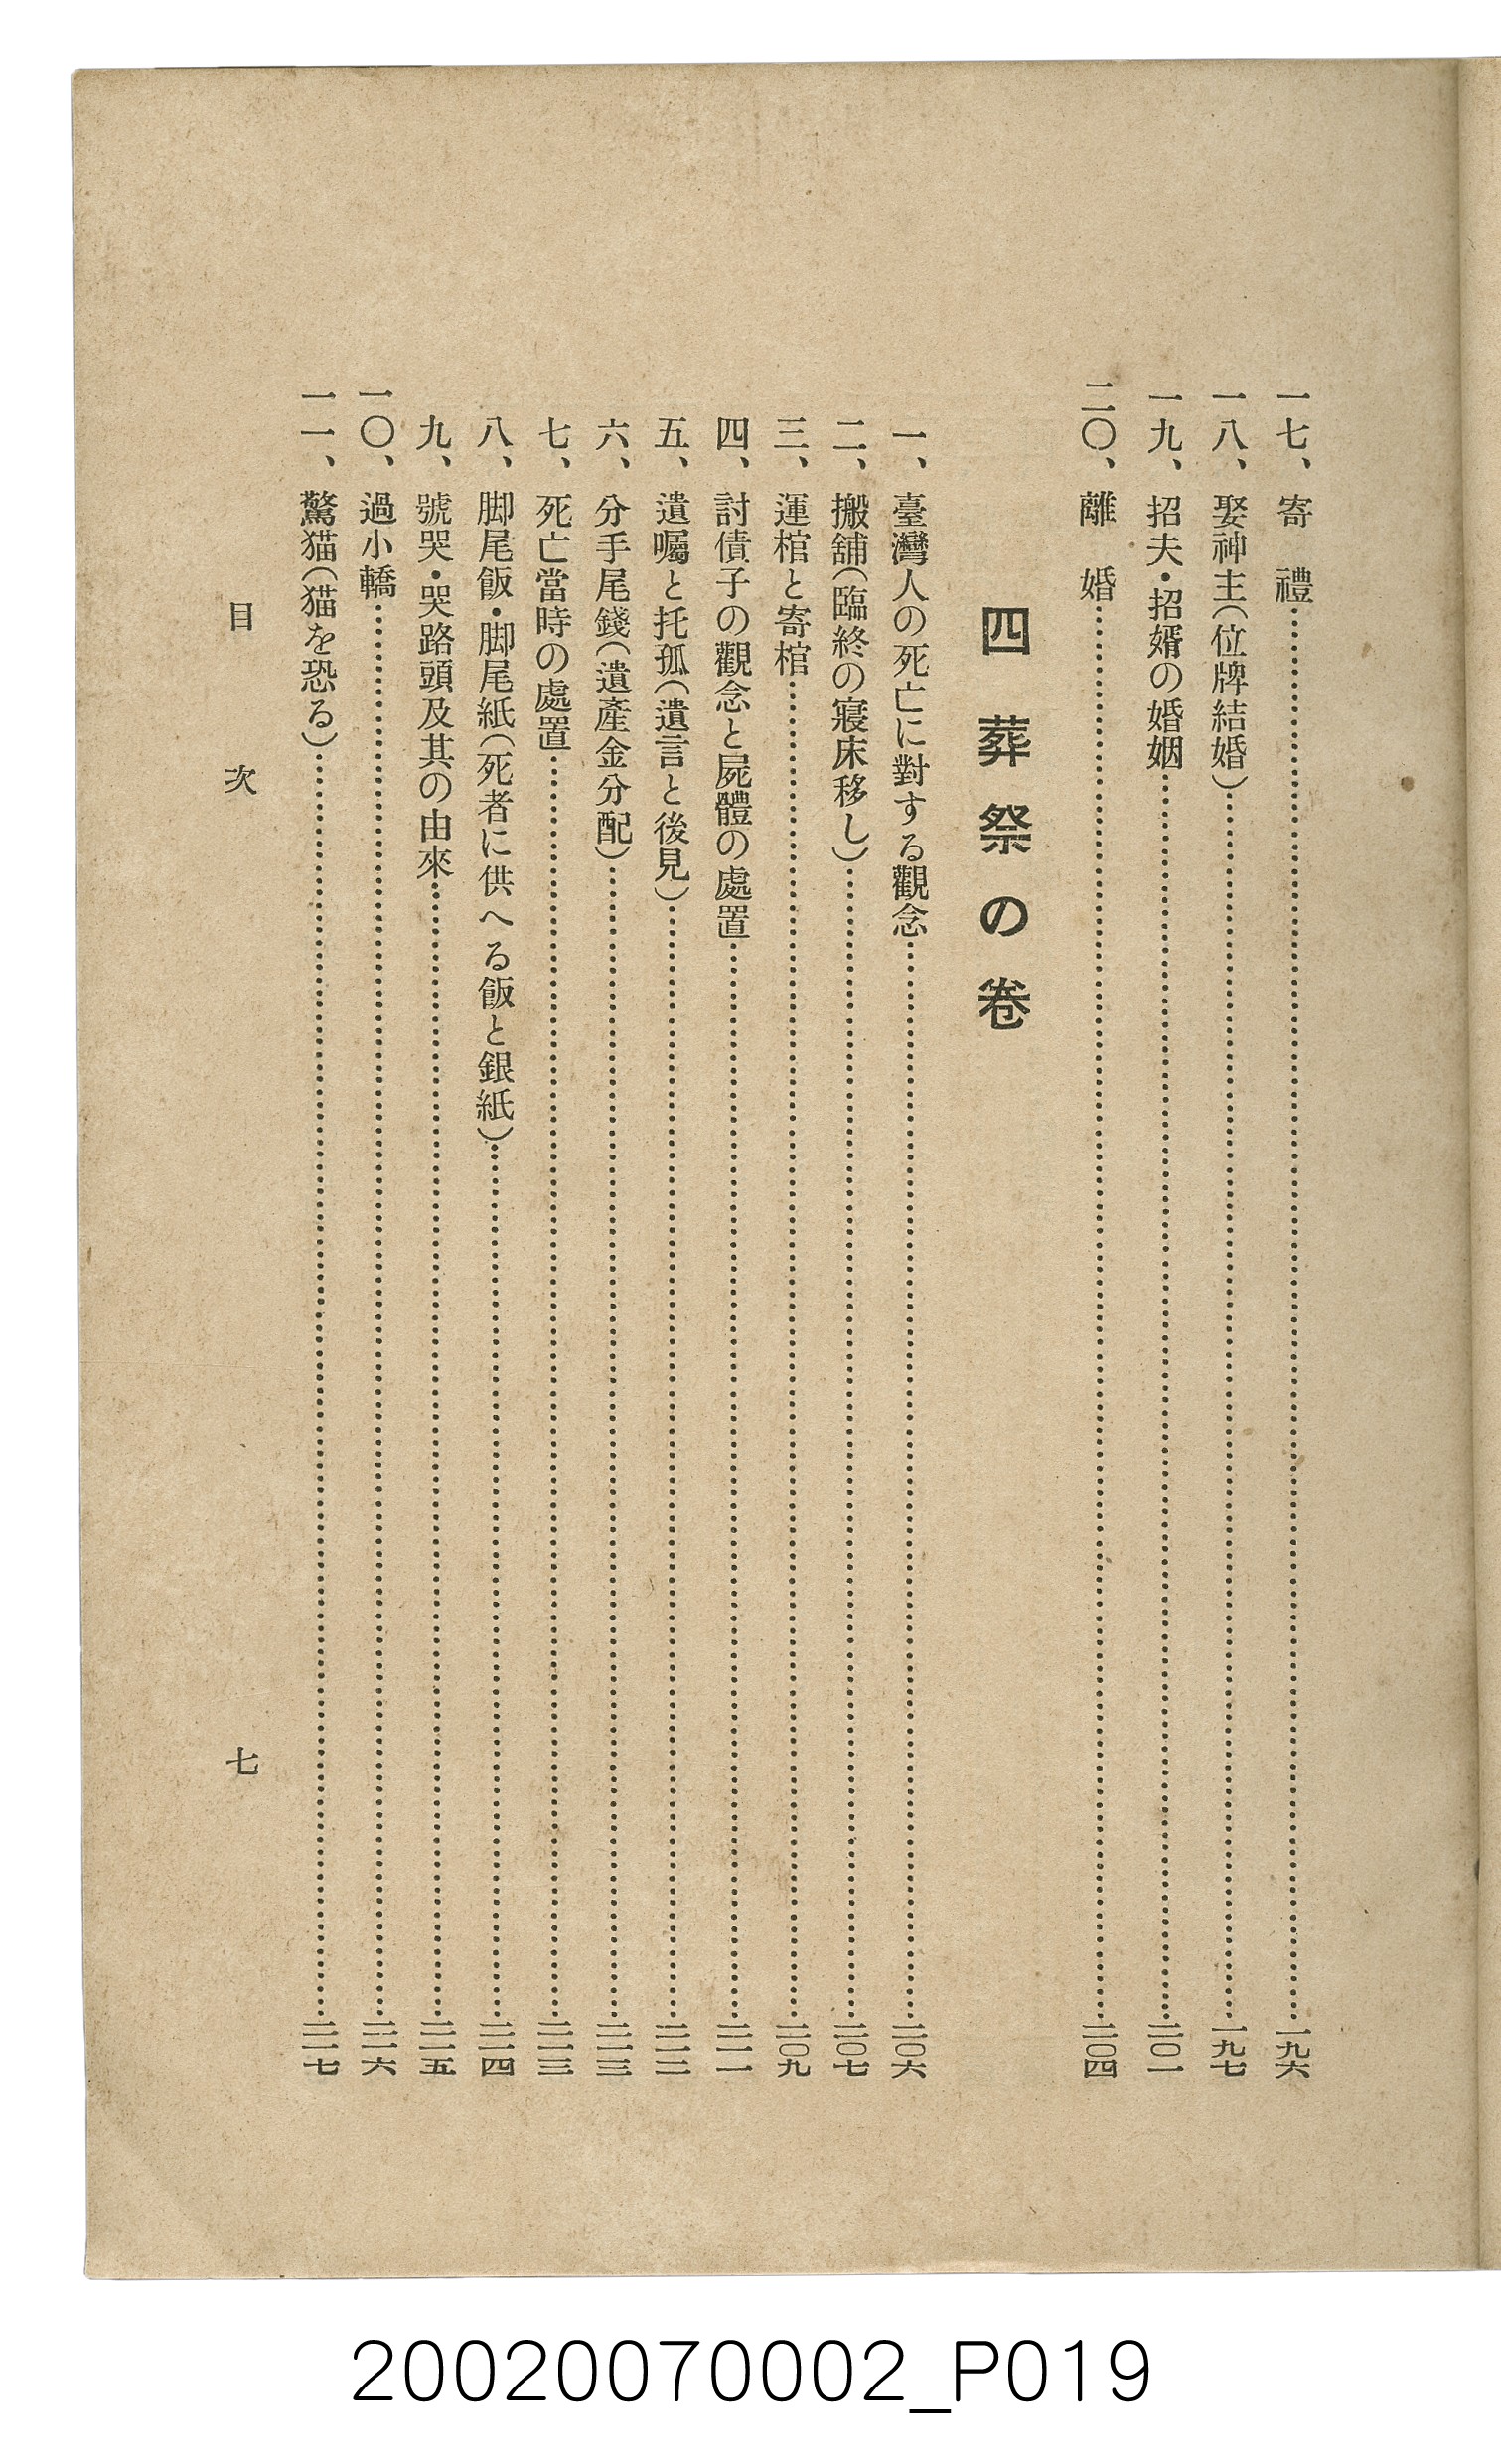 一七、寄　禮……一九六
一八、娶神主(位牌結婚)……一九七
一九、招夫・招婿の婚姻……二〇一
二〇、離　婚……二〇四
四 葬祭の卷
一、臺灣人の死亡に對する觀念……二〇六
二、搬舖(臨終の寢床移し)……二〇七
三、運棺と寄棺……二〇九
四、討債子の觀念と屍體の處置……二一一
五、遺囑と托孤(遺言と後見)……二一二
六、分手尾錢(遺產金分配)……二一三
七、死亡當時の處置……二一三
八、脚尾飯・脚尾紙(死者に供へる飯と銀紙)……二一四
九、號哭・哭路頭及其の由來……二一五
一〇、過小轎……二一六
一一、驚猫(猫を恐る)……二一七
目　次　七
20020070002_P019